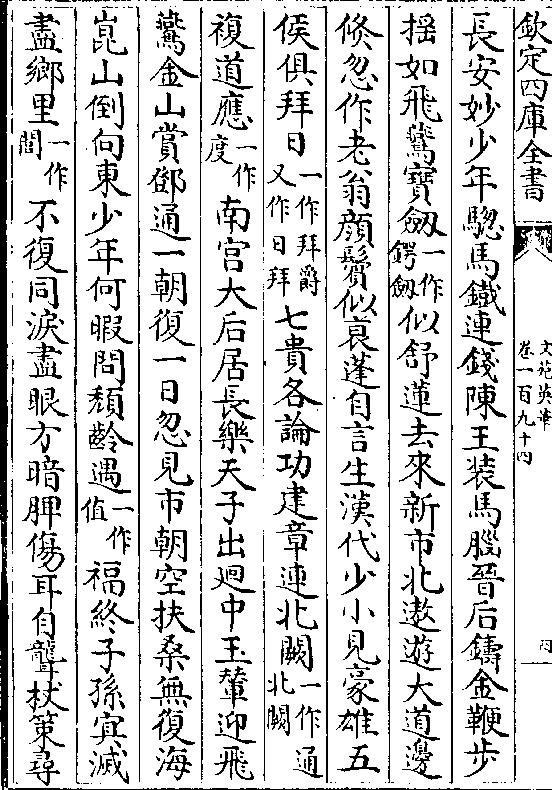 欽定四庫全書
文苑英華
卷一百九十四
四
長安妙少年驄馬鐵連錢陳王装馬腦晉后鑄金鞭步
揺如飛鷰寶劔一作鍔劔似舒蓮去來新市北遨遊大道邊
倐忽作老翁顔鬢似衰蓬自言生漢代少小見豪雄五
侯俱拜日一作拜爵又作日拜七貴各論功建章連北闕一作通北闕
複道應一作度南宫大后居長樂天子出廻中玉輦迎飛
鷰金山賞鄧通一朝復一日忽見市朝空扶桑無復海
崑山倒向東少年何暇問頽齡遇一作值福終子孫㝠滅
盡鄉里一作閭不復同淚盡眼方暗脾傷耳自聾杖策尋